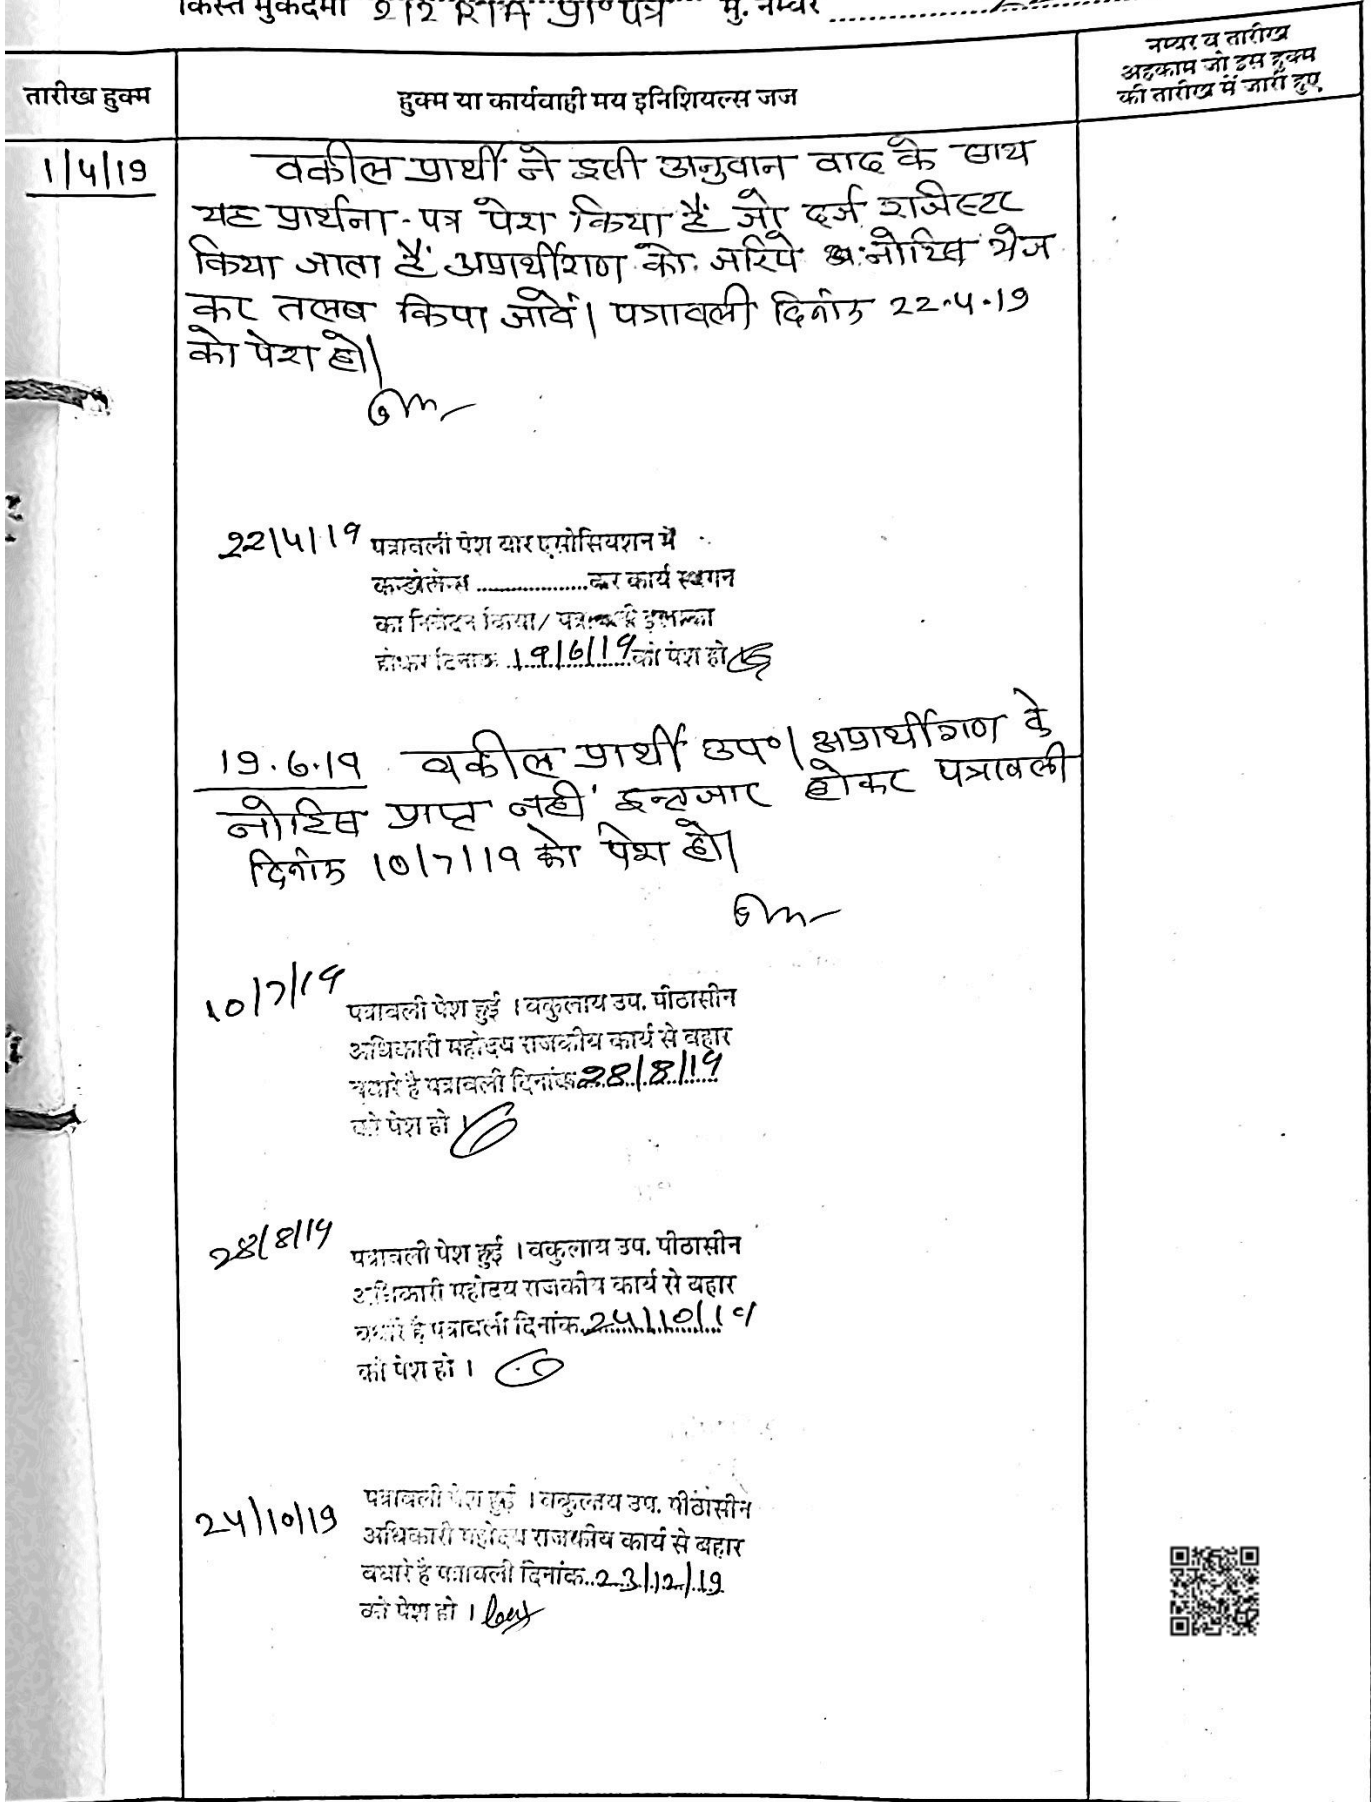 किस्त मुकदमा 212 RTA प्रा० पत्र मु. नम्बर
तारीख हुक्म
हुक्म या कार्यवाही मय इनिशियल्स जज
नम्बर व तारीख
अहकाम जो इस हुक्म
की तारीख में जारी हुए
1/4/19
वकील प्रार्थी ने इसी अनुवान वाद के साथ
यह प्रार्थना-पत्र पेश किया है जो दर्ज रजिस्टर
किया जाता है अप्रार्थीगण को जरिये नोटिस भेज
कर तलब किया जावें। पत्रावली दिनांक 22.4.19
को पेश हो।
22/4/19 पत्रावली पेश बार एसोसियशन में
कन्डोलेन्स ....................कर कार्य स्थगन
का निवेदन किया/ पत्रावली
होकर दिनांक 19/6/19 को पेश हो
19.6.19 वकील प्रार्थी उप०। अप्रार्थीगण के
नोटिस प्राप्त नहीं इन्तजार होकर पत्रावली
दिनांक 10/7/19 को पेश हो।
10/7/19 पत्रावली पेश हुई । वकुलाय उप. पीठासीन
अधिकारी महोदय राजकीय कार्य से बहार
पधारे है पत्रावली दिनांक 28/8/19
को पेश हो ।
28/8/19 पत्रावली पेश हुई । वकुलाय उप. पीठासीन
अधिकारी महोदय राजकीय कार्य से बहार
पधारे है पत्रावली दिनांक 24/10/19
को पेश हो ।
24/10/19 पत्रावली पेश हुई । वकुलाय उप. पीठासीन
अधिकारी महोदय राजकीय कार्य से बहार
पधारे है पत्रावली दिनांक..23/12/19
को पेश हो ।